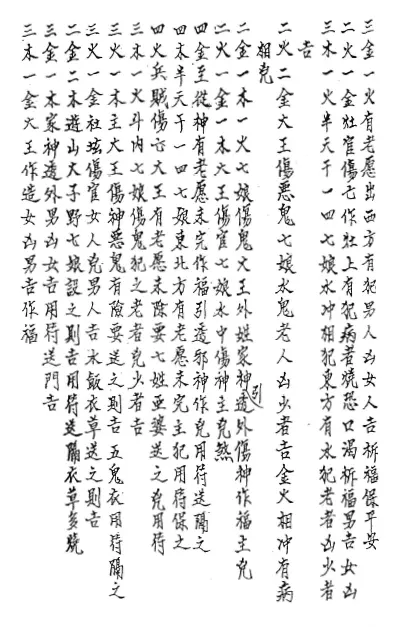 三金一火有老愿出西方有犯男人凶女人吉祈福保平安
二火一金灶官傷亡作灶上有犯病者燒恐口渴祈福男吉女凶
三木一火半天干一四七娘水冲相犯東方有木犯老者凶少者
吉
二火二金大王傷惡鬼七娘水鬼老人凶少者吉金火相冲有病
相克
二金一木一火七娘傷鬼火王外姓家神透引外傷神作福主兇
二火一金一木火王傷官七娘水中傷神主兇煞
四金至從神有老愿未完作福引透邪神作兇用符送隔之
四木半天干一四七娘東北方有老愿未完主犯用符保之
四火兵賊傷亡大王有老愿未除要七姓亜婆送之兇用符
三木一火斗内七娘傷鬼犯之老者兇少者吉
三火一木主大王傷神惡鬼有險要送之則吉五鬼衣用符隔之
三火一金社坛傷官女人兇男人吉水飯衣草送之則吉
二金二木遊山大子野七娘設之則吉用符送隔衣草多燒
三金一木家神透外男凶女吉用符送門吉
三木一金大王作造女凶男吉作福